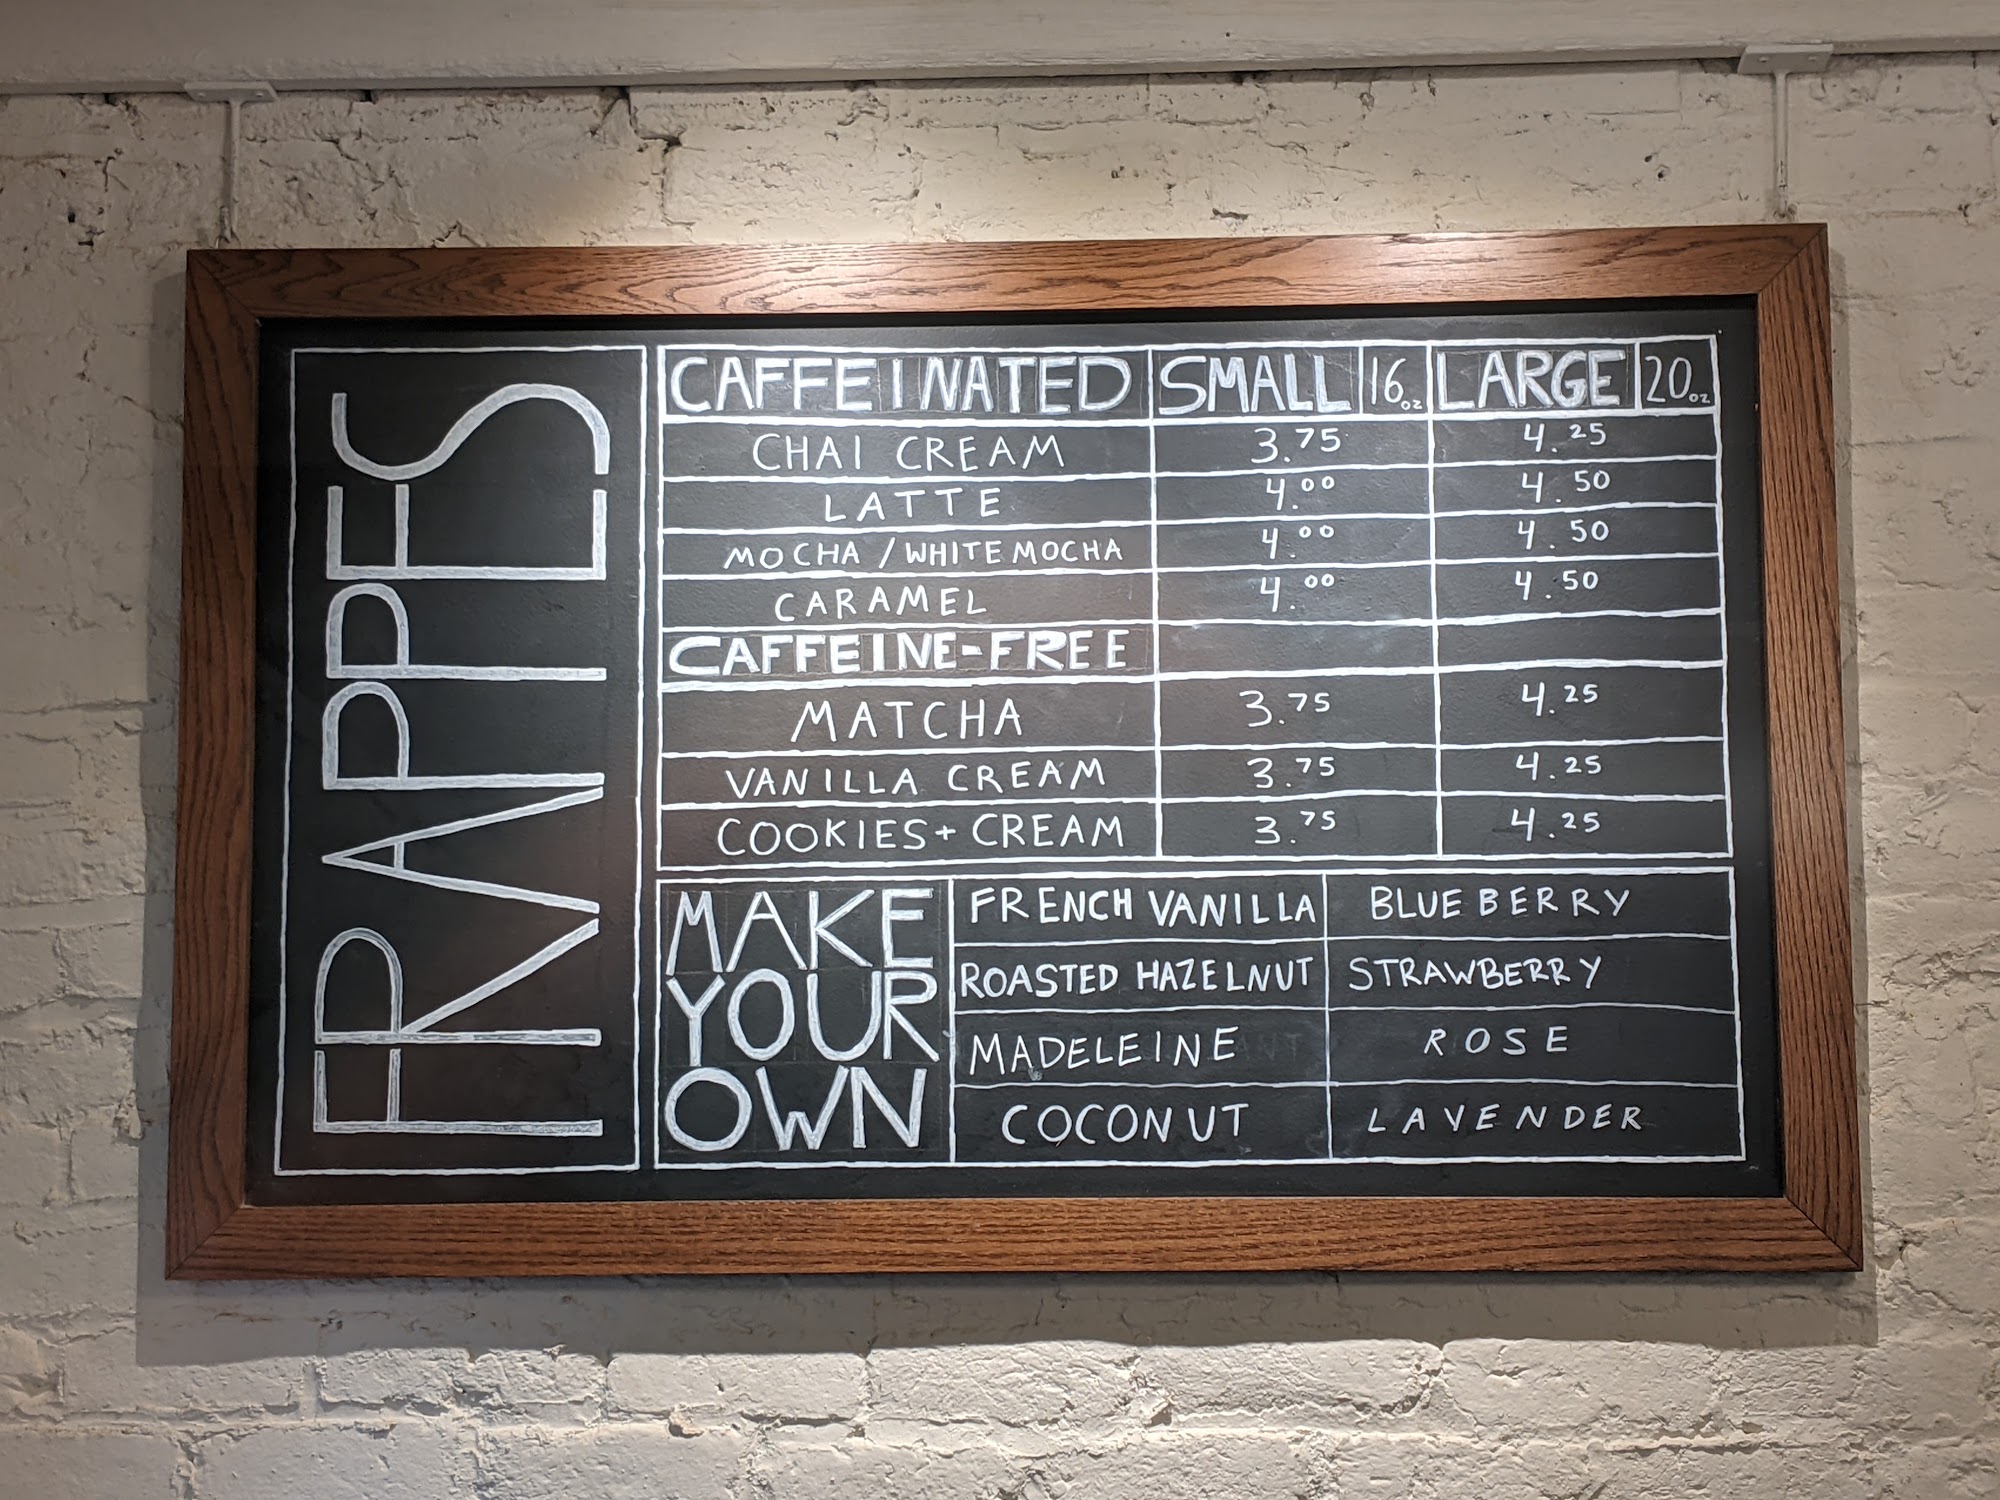 FRAPPES
CAFFEINATED SMALL 16oz LARGE 20oz
CHAI CREAM 3.75 4.25
LATTE 4.00 4.50
MOCHA / WHITE MOCHA 4.00 4.50
CARAMEL 4.00 4.50
CAFFEINE-FREE
MATCHA 3.75 4.25
VANILLA CREAM 3.75 4.25
COOKIES + CREAM 3.75 4.25
MAKE
YOUR
OWN
FRENCH VANILLA BLUEBERRY
ROASTED HAZELNUT STRAWBERRY
MADELEINE ROSE
COCONUT LAVENDER